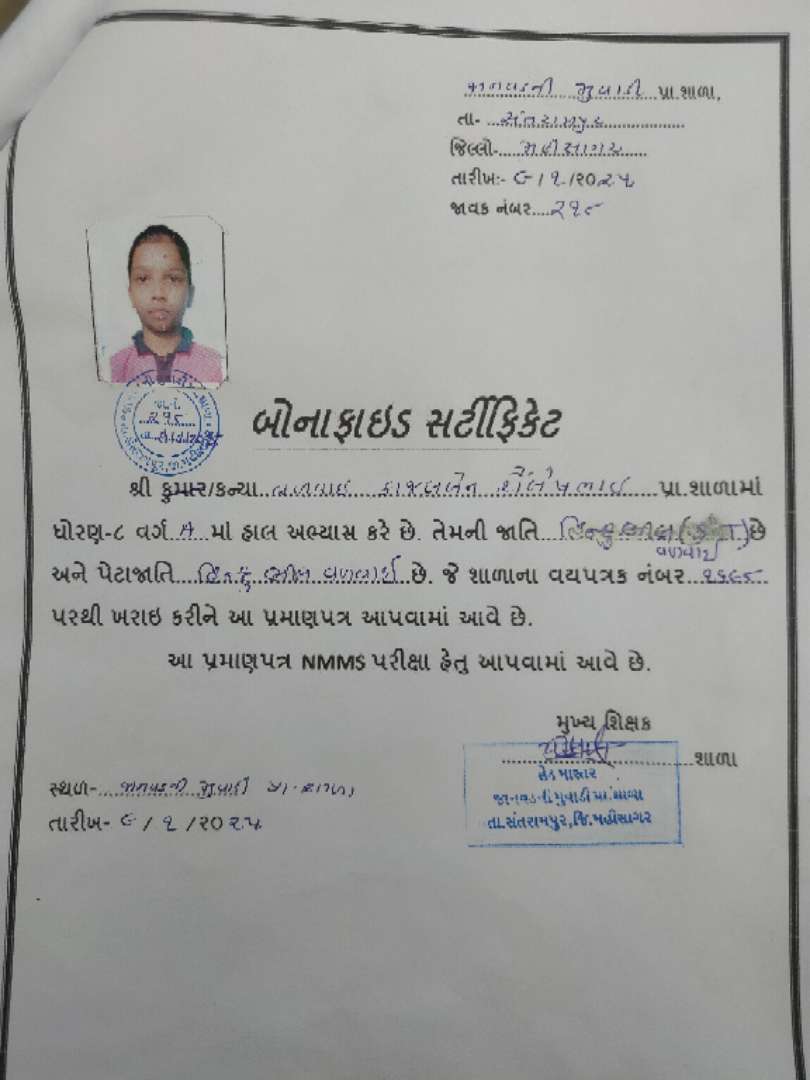 જાનવડની મુવાડી પ્રા.શાળા,
તા- સંતરામપુર
જિલ્લો- મહીસાગર
તારીખ:- ૯/૧/૨૦૨૫
જાવક નંબર....૨૧૮
બોનાફાઇડ સર્ટીફિકેટ
શ્રી કુમાર/કન્યા..વળવાઇ કાજલબેન શૈલેષભાઇ પ્રા.શાળામાં
ધોરણ-૮ વર્ગ A માં હાલ અભ્યાસ કરે છે. તેમની જાતિ હિન્દુ ભીલ છે
વળવાઇ
અને પેટાજાતિ હિન્દુ ભીલ વળવાઇ છે. જે શાળાના વયપત્રક નંબર
પરથી ખરાઇ કરીને આ પ્રમાણપત્ર આપવામાં આવે છે.
આ પ્રમાણપત્ર NMMS પરીક્ષા હેતુ આપવામાં આવે છે.
મુખ્ય શિક્ષક
શાળા
હેડ માસ્તર
જાનવડની મુવાડી પ્રા. શાળા
તા.સંતરામપુર,જિ.મહીસાગર
સ્થળ- જાનવડની મુવાડી પ્રા.શાળા
તારીખ- ૯/૧/૨૦૨૫